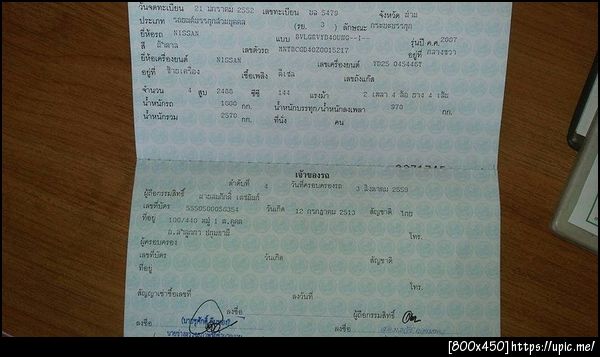 วันจดทะเบียน 21 มกราคม 2552 เลขทะเบียน 5479 จังหวัด น่าน
ประเภท รถยนต์บรรทุกส่วนบุคคล (รย. 3 ) ลักษณะ กระบะบรรทุก
ยี่ห้อรถ NISSAN แบบ รุ่นปี ค.ศ. 2007
สี เลขตัวรถ MNTBCGD40Z0015217 อยู่ที่ กลางขวา
ยี่ห้อเครื่องยนต์ NISSAN เลขเครื่องยนต์ YD25 045446T
อยู่ที่ ซ้ายเครื่อง เชื้อเพลิง ดีเซล เลขถังแก๊ส
จำนวน 4 สูบ 2488 ซีซี 144 แรงม้า 2 เพลา 4 ล้อ ยาง 4 เส้น
น้ำหนักรถ 1600 กก. น้ำหนักบรรทุก/น้ำหนักลงเพลา 970 กก.
น้ำหนักรวม 2570 กก. ที่นั่ง คน
เจ้าของรถ
ลำดับที่ 4 วันที่ครอบครองรถ 3 สิงหาคม 2559
ผู้ถือกรรมสิทธิ์
เลขที่บัตร วันเกิด 12 กรกฎาคม 2513 สัญชาติ ไทย
ที่อยู่ 100/440 หมู่ 1 ต.คูคต
อ.ลำลูกกา ปทุมธานี โทร.
ผู้ครอบครอง
เลขที่บัตร วันเกิด สัญชาติ
ที่อยู่ โทร.
สัญญาเช่าซื้อเลขที่ ลงวันที่
ลงชื่อ ผู้ถือกรรมสิทธิ์
ลงชื่อ
[800x450] https://upic.me/